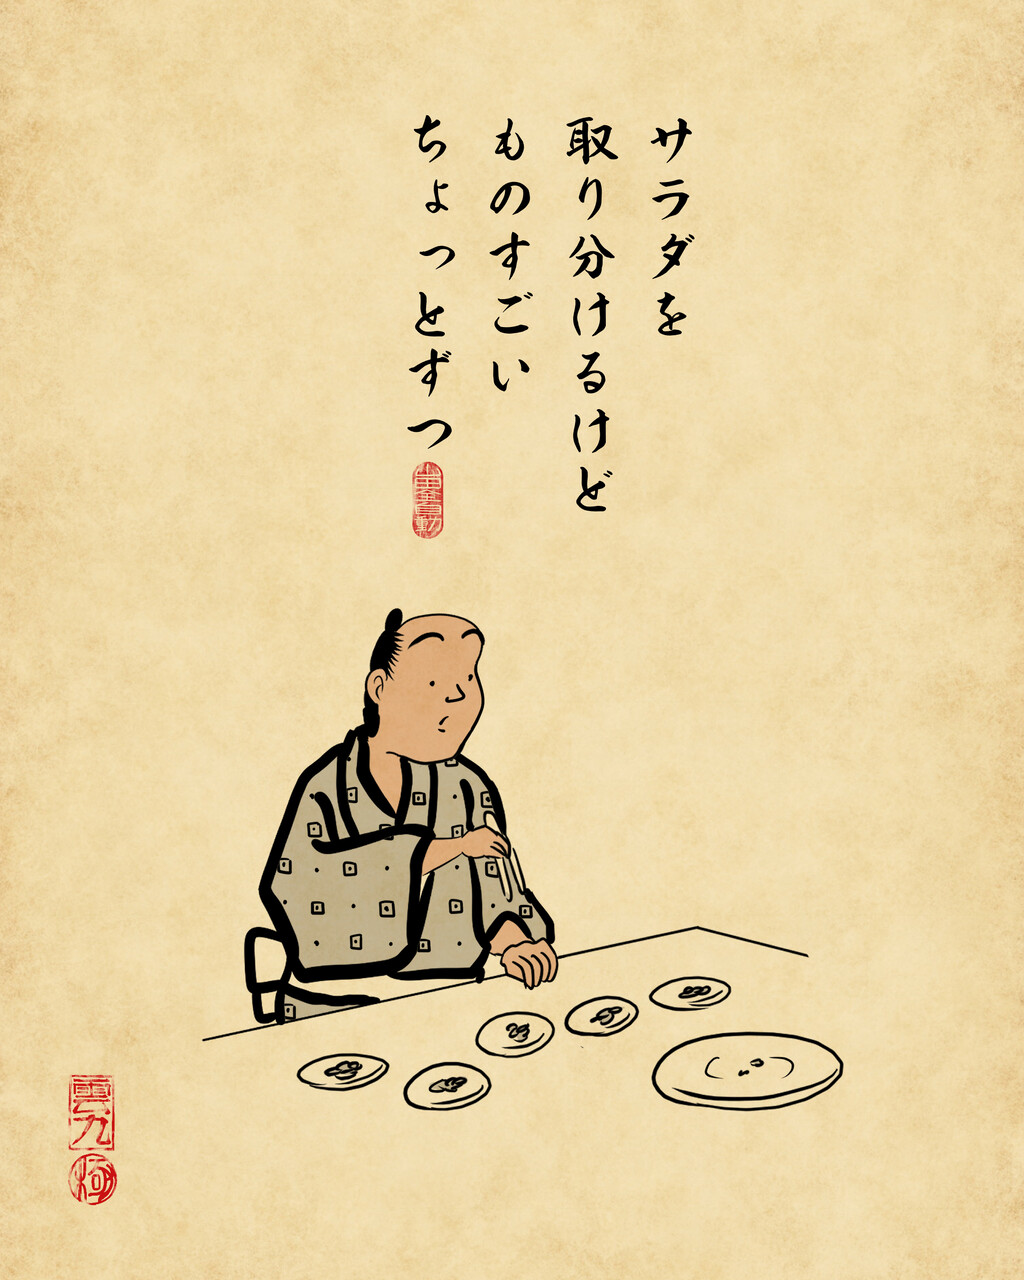 サラダを
取り分けるけど
ものすごい
ちょっとずつ